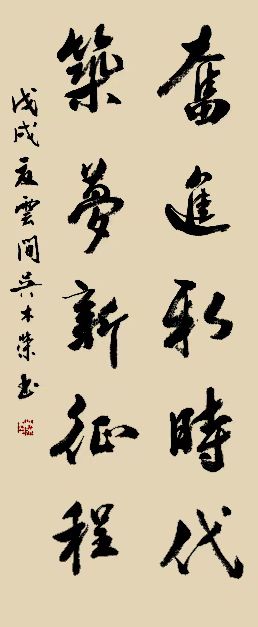 奮進新時代
築夢新征程
戊戌夏雲間吳木榮书